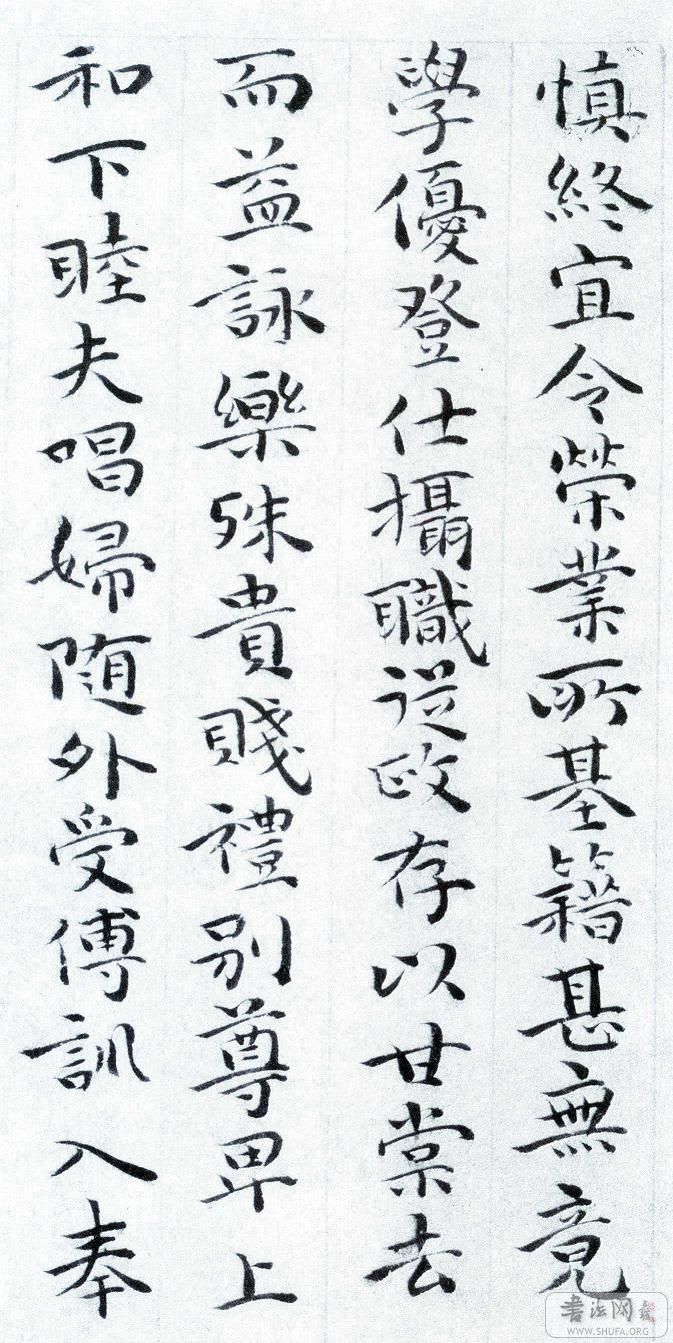 慎終宜令榮業所基籍甚無竟
學優登仕攝職從政存以甘棠去
而益詠樂殊貴賤禮別尊卑上
和下睦夫唱婦随外受傅訓入奉
書法网
WWW.SHUFA.ORG